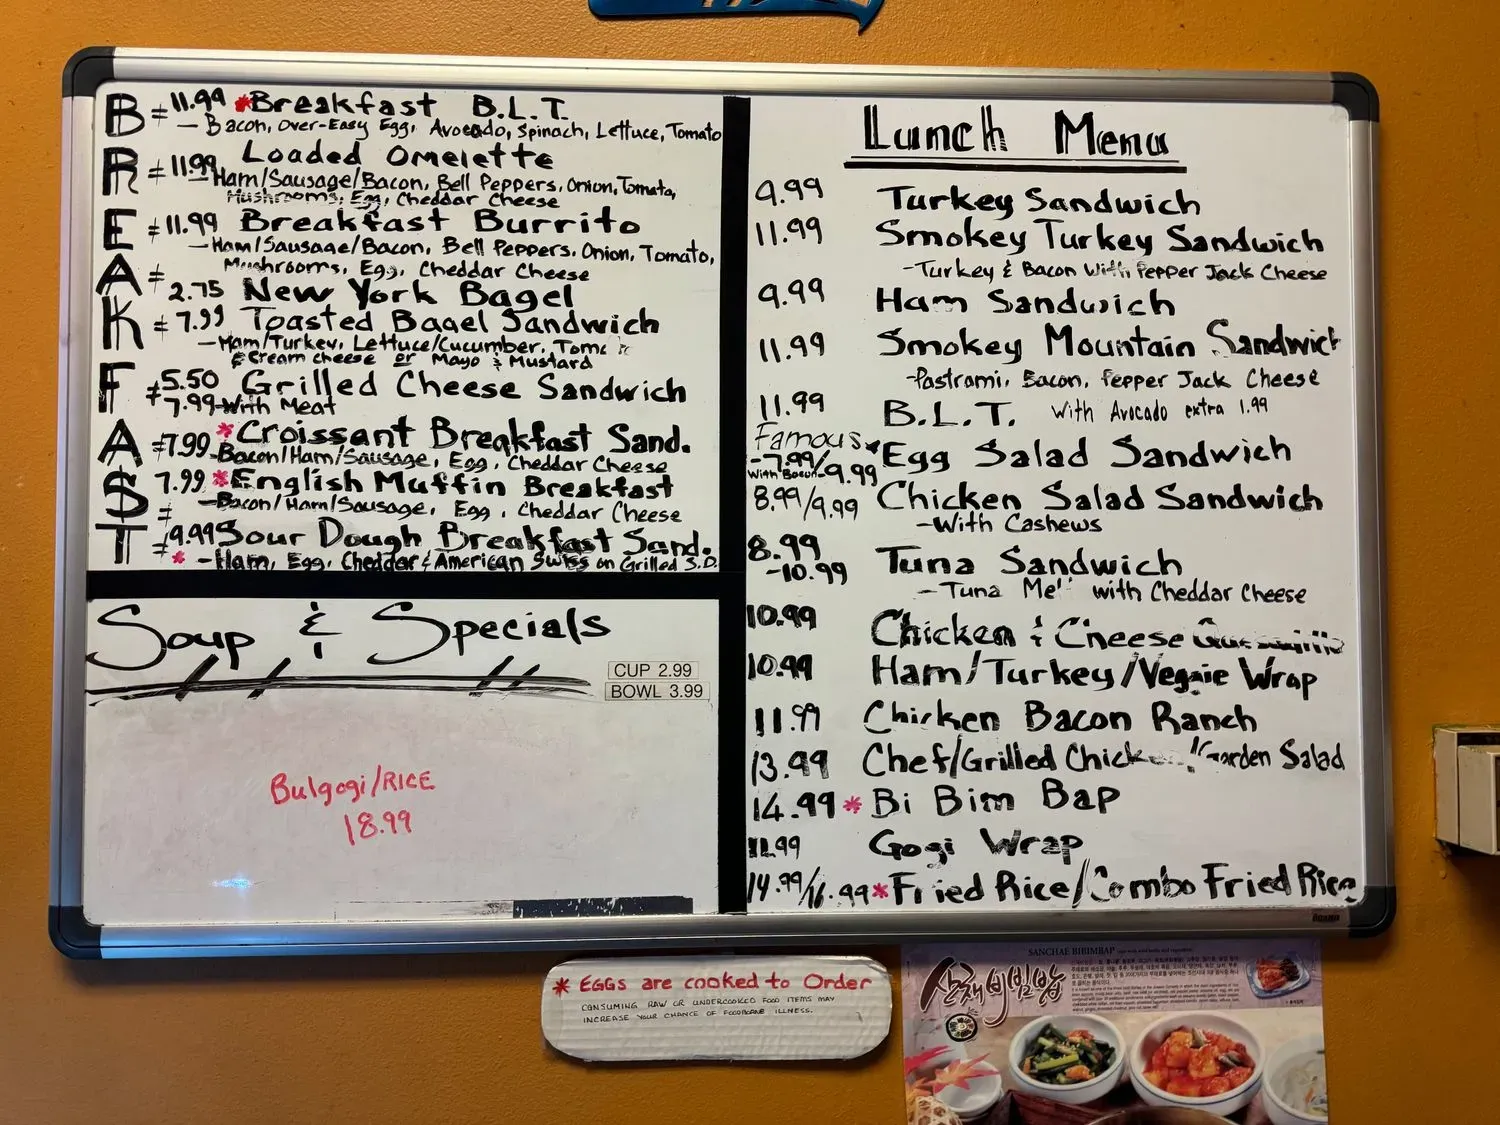 BREAKFAST
11.99 *Breakfast B.L.T.
- Bacon, Over-Easy Egg, Avocado, Spinach, Lettuce, Tomato
11.99 Loaded Omelette
- Ham/Sausage/Bacon, Bell Peppers, Onion, Tomato,
Mushrooms, Egg, Cheddar Cheese
11.99 Breakfast Burrito
- Ham/Sausage/Bacon, Bell Peppers, Onion, Tomato,
Mushrooms, Egg, Cheddar Cheese
2.75 New York Bagel
7.99 Toasted Bagel Sandwich
- Ham/Turkey, Lettuce/Cucumber,
& Cream cheese or Mayo & Mustard
5.50 Grilled Cheese Sandwich
7.99 With Meat
7.99 *Croissant Breakfast Sand.
- Bacon/Ham/Sausage, Egg, Cheddar Cheese
7.99 *English Muffin Breakfast
- Bacon/Ham/Sausage, Egg, Cheddar Cheese
9.99 Sour Dough Breakfast Sand.
* - Ham, Egg, Cheddar & American Swiss on Grilled S.D.
Soup & Specials
CUP 2.99
BOWL 3.99
Bulgogi/RICE
18.99
Lunch Menu
9.99 Turkey Sandwich
11.99 Smokey Turkey Sandwich
- Turkey & Bacon With Pepper Jack Cheese
9.99 Ham Sandwich
11.99 Smokey Mountain Sandwich
- Pastrami, Bacon, Pepper Jack Cheese
11.99 B.L.T. With Avocado extra 1.99
Famous
- 7.99/ Egg Salad Sandwich
With Bacon - 9.99
8.99/9.99 Chicken Salad Sandwich
- With Cashews
8.99 Tuna Sandwich
- 10.99 - Tuna with Cheddar Cheese
10.99 Chicken & Cheese
10.99 Ham/Turkey/Veggie Wrap
11.99 Chicken Bacon Ranch
13.99 Chef/Grilled Chicken/Garden Salad
14.99 * Bi Bim Bap
11.99 Gogi Wrap
14.99/16.99 *Fried Rice/Combo Fried Rice
* EGGS are cooked to Order
CONSUMING RAW OR UNDERCOOKED FOOD ITEMS MAY
INCREASE YOUR CHANCE OF FOODBORNE ILLNESS.
SANCHAE BIBIMBAP
산채비빔밥